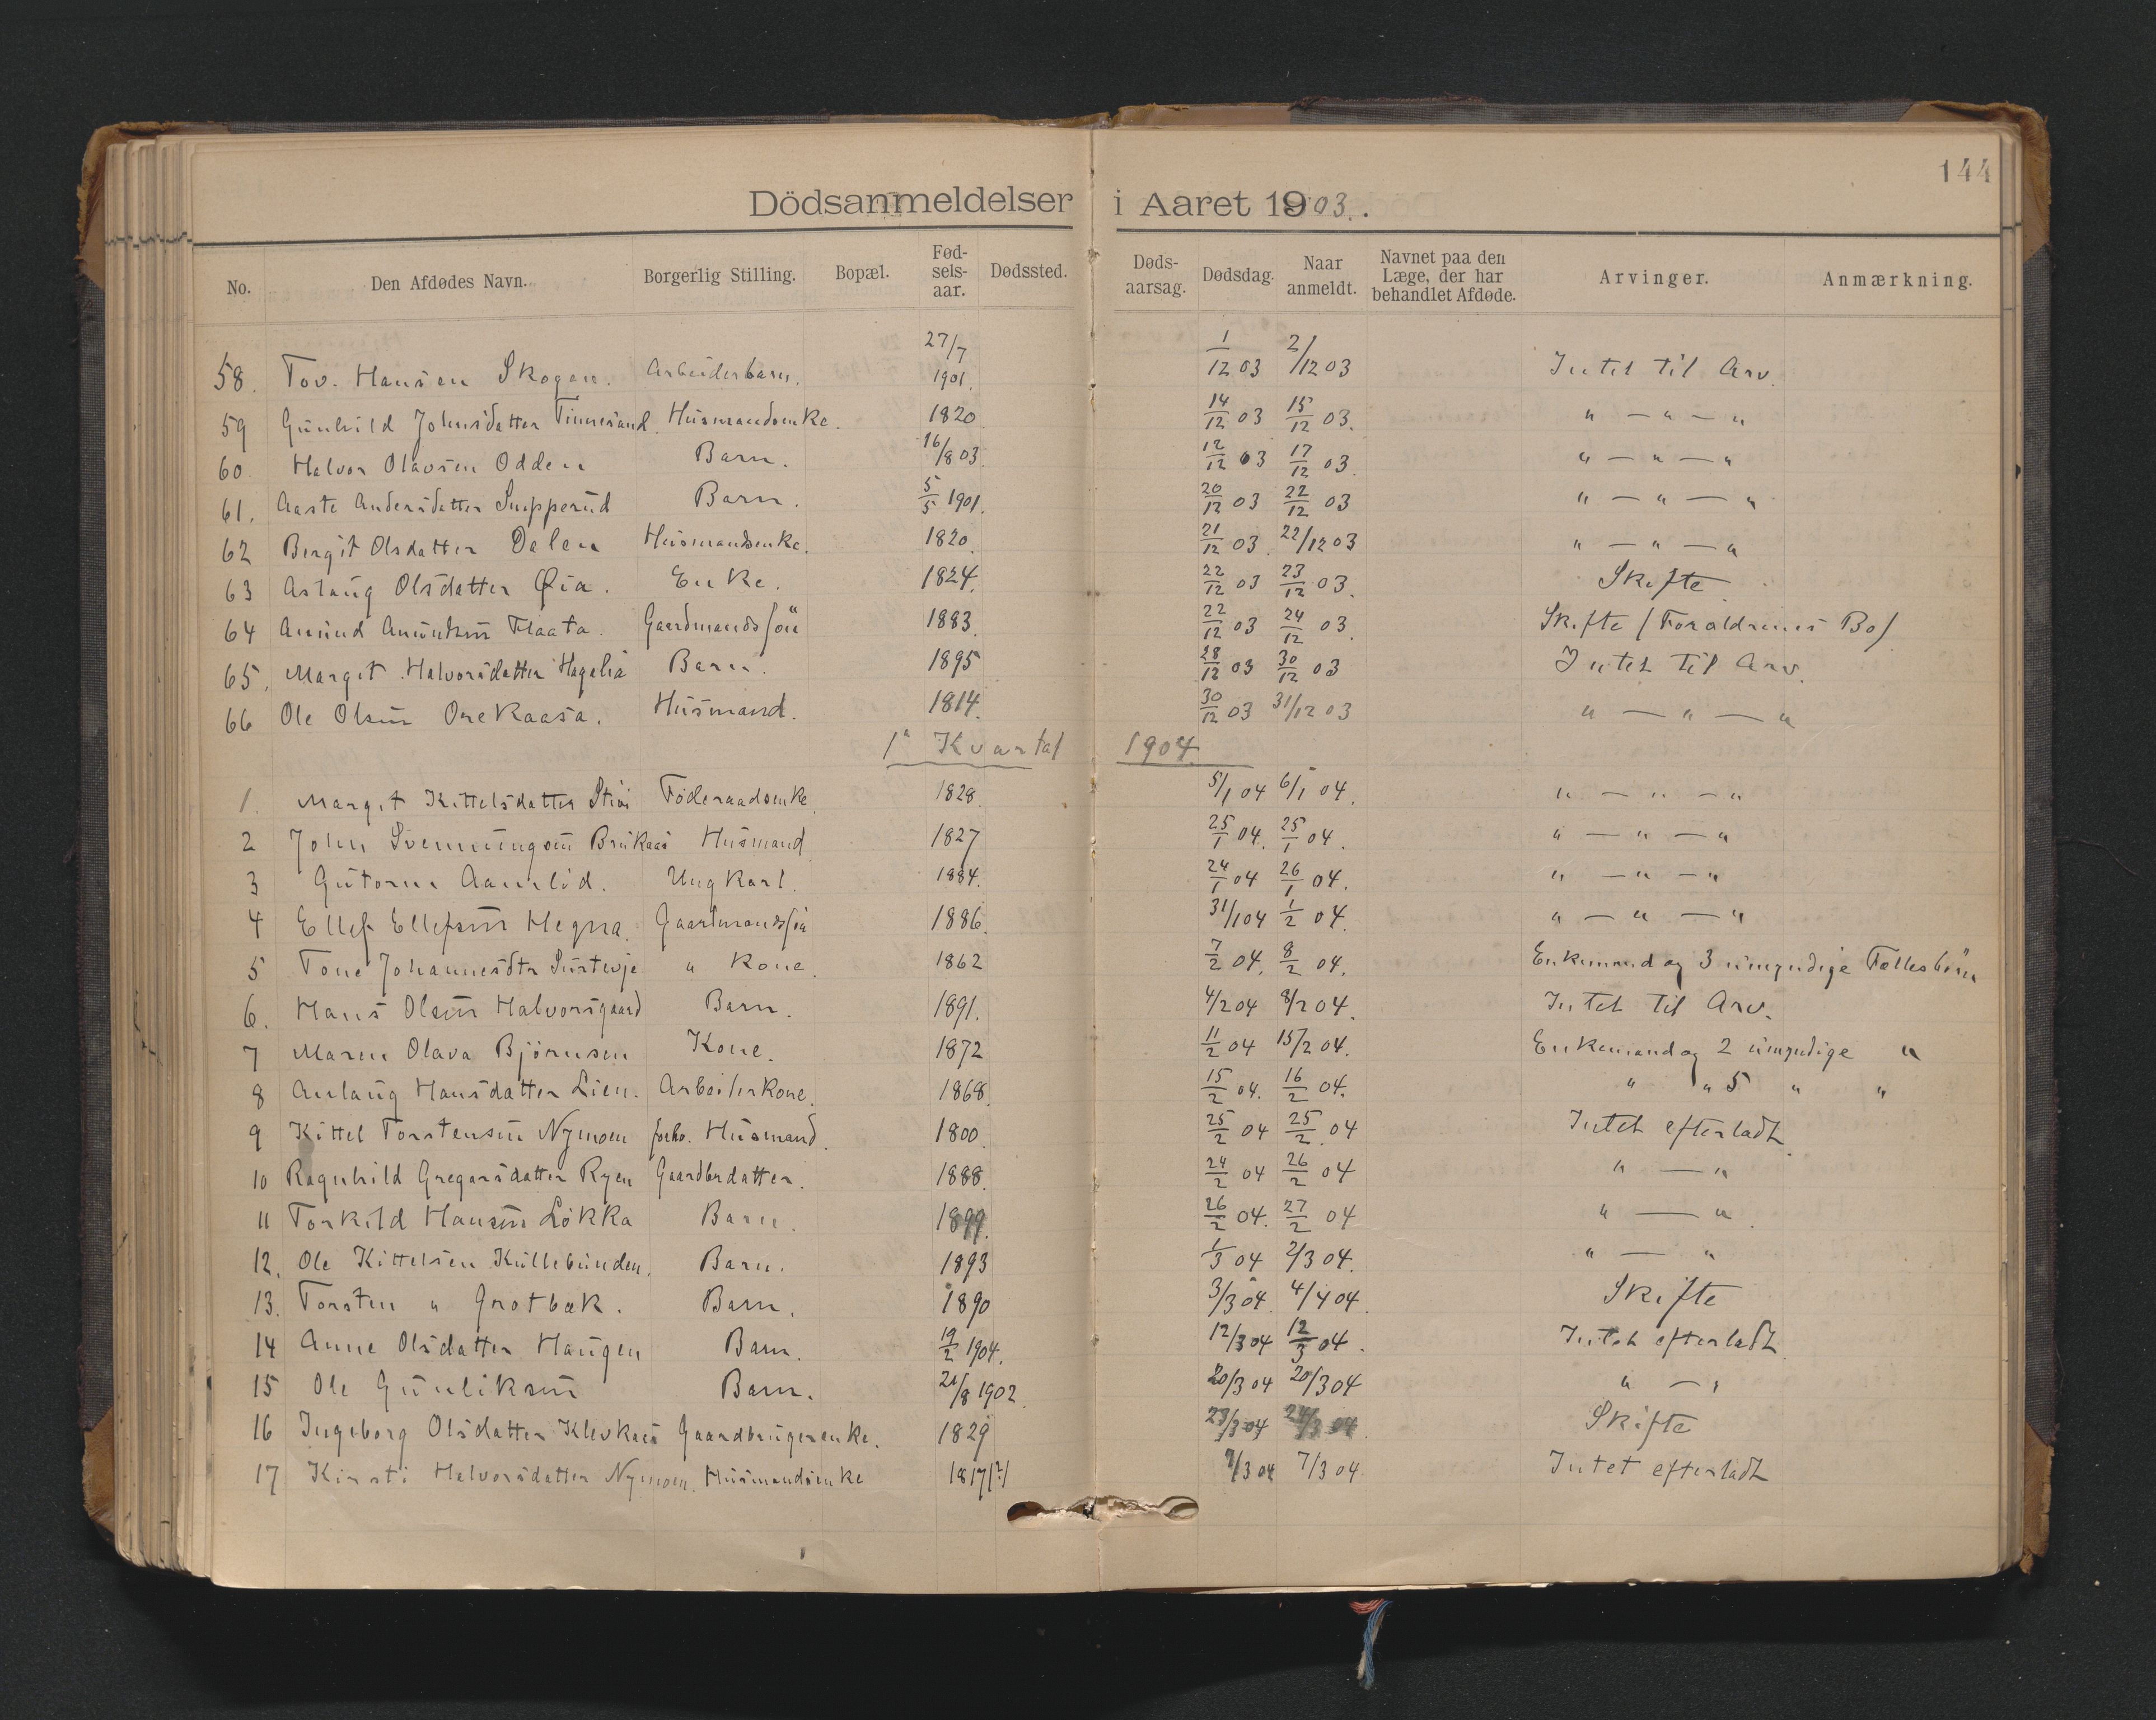 144
Dödsanmeldelser i Aaret 1903.
No. Den Afdødes Navn. Borgerlig Stilling. Bopæl. Fød-sels-aar. Dødssted. Døds-aarsag. Dødsdag. Naar anmeldt. Navnet paa den Læge, der har behandlet Afdøde. Arvinger. Anmærkning.
58. Tov. Hansen Skogen. Arbeiderbarn. 27/7 1901. 1/12 03 2/12 03 Intet til Arv.
59 Gunhild Johnsdatter Tinnesand. Husmandsenke. 1820 14/12 03 15/12 03. " — " — "
60 Halvor Olavsen Odden Barn. 16/8 03. 12/12 03 17/12 03. " — " — "
61. Aaste Andersdatter Barn. 5/5 1901. 20/12 03 22/12 03 " — " — "
62 Bergit Olsdatter Dalen Husmandsenke. 1820. 21/12 03. 22/12 03 " — " — "
63 Aslaug Olsdatter Øia. Enke. 1824. 22/12 03 23/12 03. Skifte
64 Amund Flaata. Gaardmandssön 1883. 22/12 03 24/12 03. Skifte / Forældrenes Bo /
65. Margit Halvorsdatter Hagalia Barn. 1895 28/12 03 30/12 03 Intet til Arv.
66 Ole Olsen Orekaasa. Husmand. 1814. 30/12 03 31/12 03 " — " — "
1ª Kvartal 1904.
1. Margit Kittelsdatter Föderaadsenke. 1828. 5/1 04 6/1 04. " — " — "
2 John Svenningsen Husmand. 1827 25/1 04. 25/1 04. " — " — "
3 Gutorm Aamlid. Ungkarl. 1884. 24/1 04 26/1 04. " — " — "
4 Ellef Ellefsen Hegna. Gaardmandssön 1886. 31/1 04 1/2 04. " — " — "
5 Tone Johannesdtr " Kone. 1862 7/2 04. 8/2 04. Enkemand og 3 umyndige Fællesbörn
6. Hans Olsen Halvorsgaard Barn. 1891. 4/2 04 8/2 04. Intet til Arv.
7 Maren Olava Björnsen Kone. 1872 11/2 04 15/2 04. Enkemand og 2 umyndige "
8 Anlaug Hansdatter Lien. Arbeiderkone. 1868. 15/2 04. 16/2 04. " " 5 " "
9 Kittel Torstensen Nymoen forhv. Husmand. 1800. 25/2 04 25/2 04 Intet efterladt
10 Ragnhild Gregarsdatter Ryen Gaardbrdatter. 1888. 24/2 04 26/2 04 " — "
11 Torkild Hansen Lökka Barn. 1899. 26/2 04. 27/2 04 " — "
12. Ole Kittelsen Kullebunden. Barn. 1893 1/3 04 2/3 04. " — "
13. Torsten " Grotbæk. Barn. 1890 3/3 04. 4/4 04. Skifte
14 Anne Olsdatter Haugen Barn. 19/2 1904. 12/3 04 12/3 04. Intet efterladt
15 Ole Gunliksen Barn. 21/8 1902. 20/3 04 20/3 04 " — "
16 Ingeborg Olsdatter Klevkaas Gaardbrugerenke. 1829 23/3 04 24/3 04. Skifte
17 Kirsti Halvorsdatter Nymoen. Husmandsenke 1817(?) 7/3 04 7/3 04. Intet efterladt